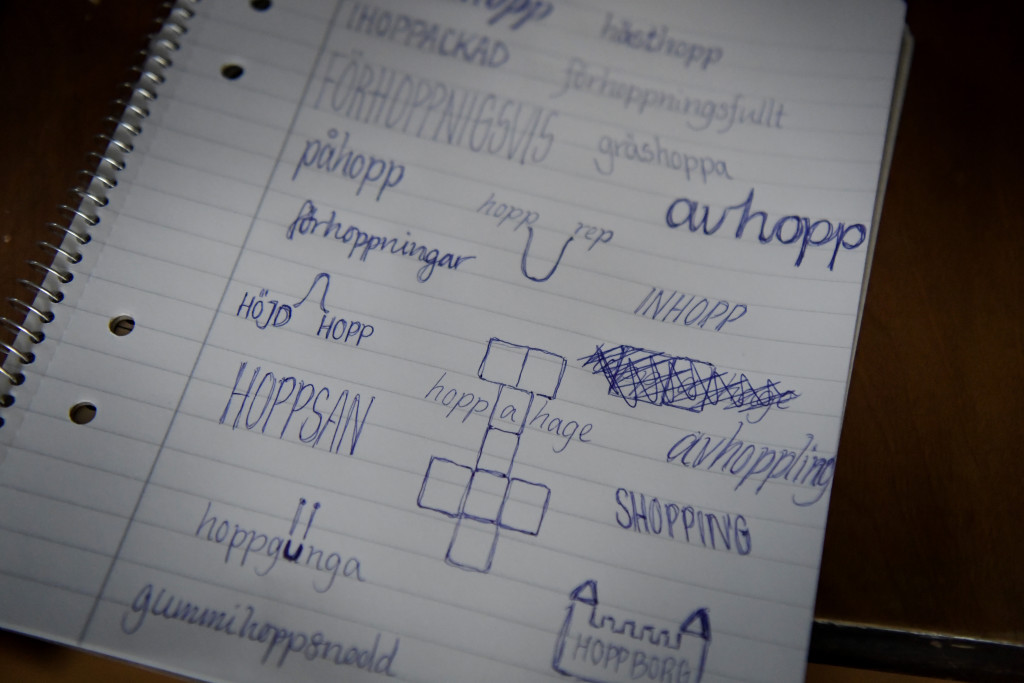 hopp
IHOPPACKAD
hästhopp
FÖRHOPPNIGSVIS
förhoppningsfullt
påhopp
gräshoppa
avhopp
hopp rep
förhoppningar
HÖJD HOPP
INHOPP
hopp a hage
HOPPSAN
avhoppling
SHOPPING
hoppgunga
gummihoppsnodd
HOPPBORG